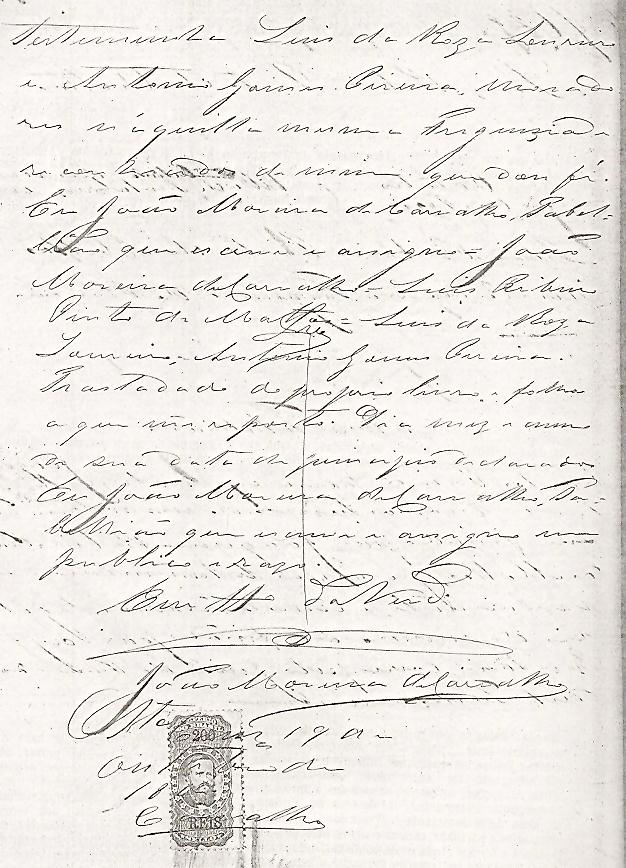 testeminha Luis da Roza Loureiro
e Antonio Gomes Pereira, morado
res n'aquella mesma Freguezia e
de mim que dou fé.
Eu João Moreira de Carvalho, Tabel-
lião que escrevi e assigno = João
Moreira de Carvalho = Luis Ribeiro
Pinto de = Luis da Roza
Loureiro, Antonio Gomes Pereira.
Trasladado do proprio livro e folha
a que me reporto. Dia mez e anno
de sua data de principio declarados
Eu João Moreira de Carvalho, Ta-
bellião que escrevi e assigno em
publico e razo.
Em tt. da Verd.
João Moreira de Carvalho
19 de
200
de
REIS
Carvalho